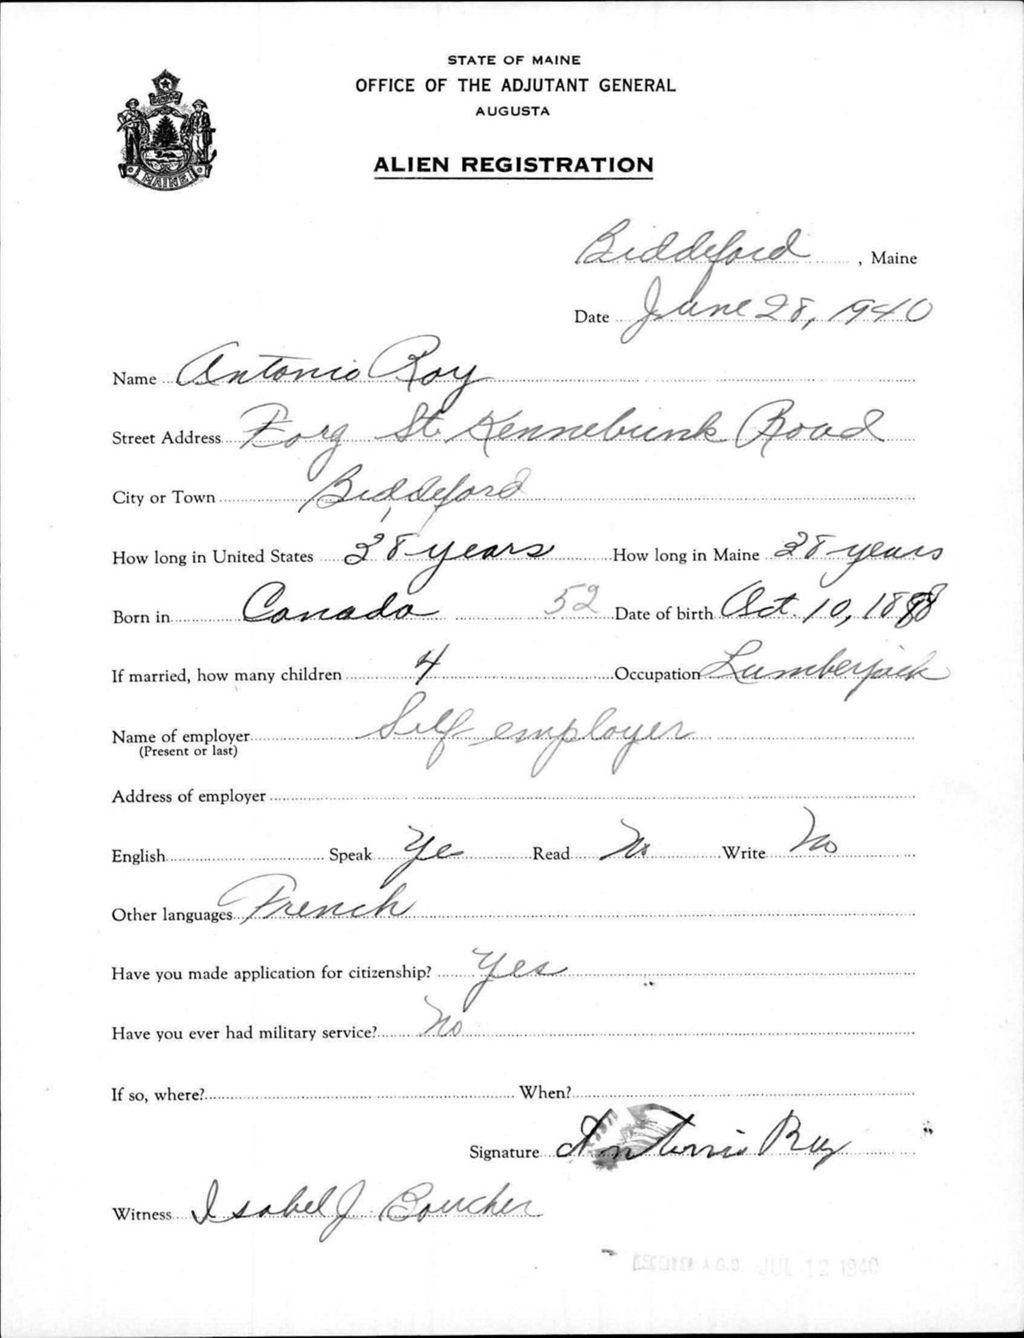 STATE OF MAINE
OFFICE OF THE ADJUTANT GENERAL
AUGUSTA
ALIEN REGISTRATION
MAINE
Biddeford, Maine
Date June 28, 1940
Name Antonio Roy
Street Address St. Kennebunk Road
City or Town Biddeford
How long in United States 38 years How long in Maine 38 years
Born in Canada 52 Date of birth Oct. 10, 1888
If married, how many children 4 Occupation Lumberjack
Name of employer Self employer
(Present or last)
Address of employer
English Speak Ye Read No Write No
Other languages French
Have you made application for citizenship? Yes
Have you ever had military service? No
If so, where? When?
Signature Antonio Roy
Witness Isabel J. Boucher
RECEIVED A.G.O. JUL 12 1940